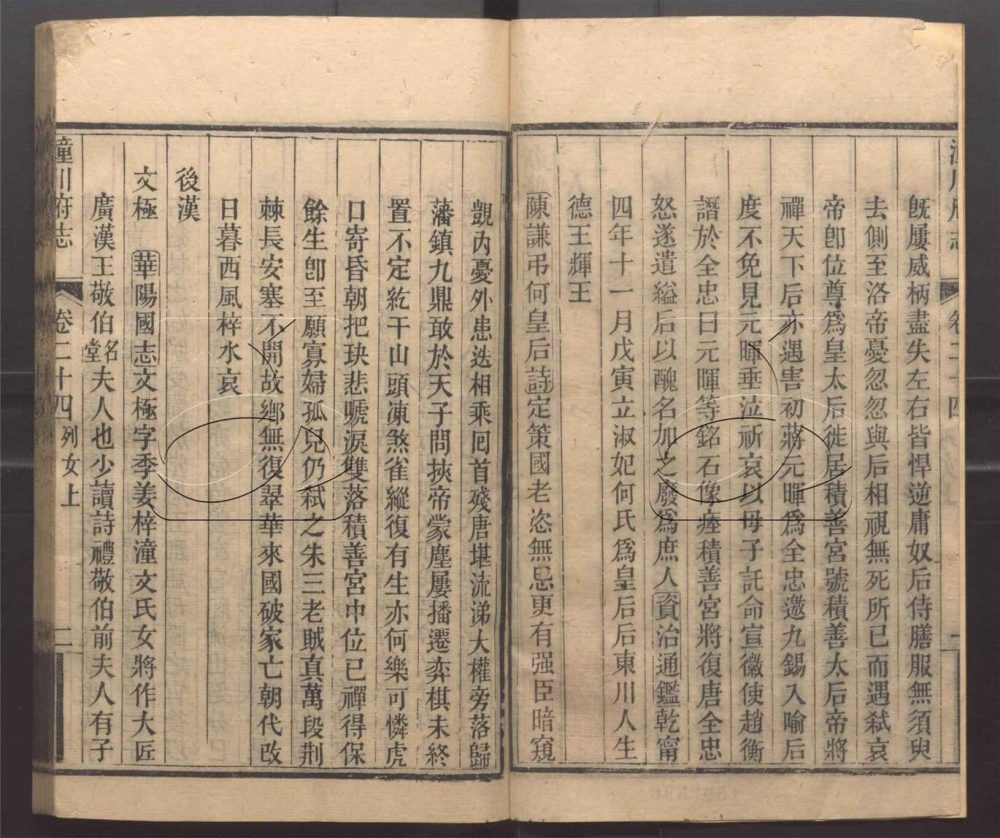 既屢威柄盡失左右皆悍逆庸奴后侍膳服無須臾
去側至洛帝憂忽忽與后相視無死所已而遇弒哀
帝卽位尊爲皇太后徙居積善宮號積善太后帝將
禪天下后亦遇害初蔣元暉爲全忠邀九錫入喻后
度不免見元暉垂泣祈哀以母子託命宣徽使趙衡
譖於全忠曰元暉等銘石像瘞積善宮將復唐全忠
怒遂遣縊后以醜名加之廢爲庶人資治通鑑乾甯
四年十一月戊寅立淑妃何氏爲皇后后東川人生
德王輝王
陳謙弔何皇后詩定策國老恣無忌更有强臣暗窺
潼川府志
卷二十四
覬內憂外患迭相乘囘首殘唐堪流涕大權旁落歸
藩鎮九鼎敢於天子問挾帝蒙塵屢播遷弈棋未終
置不定紇干山頭凍煞雀縱復有生亦何樂可憐虎
口寄昏朝把玦悲號淚雙落積善宮中位已禪得保
餘生卽至願寡婦孤兒仍弒之朱三老賊真萬段荆
棘長安塞不開故鄉無復翠華來國破家亡朝代改
日暮西風梓水哀
後漢
文極 華陽國志文極字季姜梓潼文氏女將作大匠
廣漢王敬伯名堂夫人也少讀詩禮敬伯前夫人有子
潼川府志
卷二十四 列女上
二